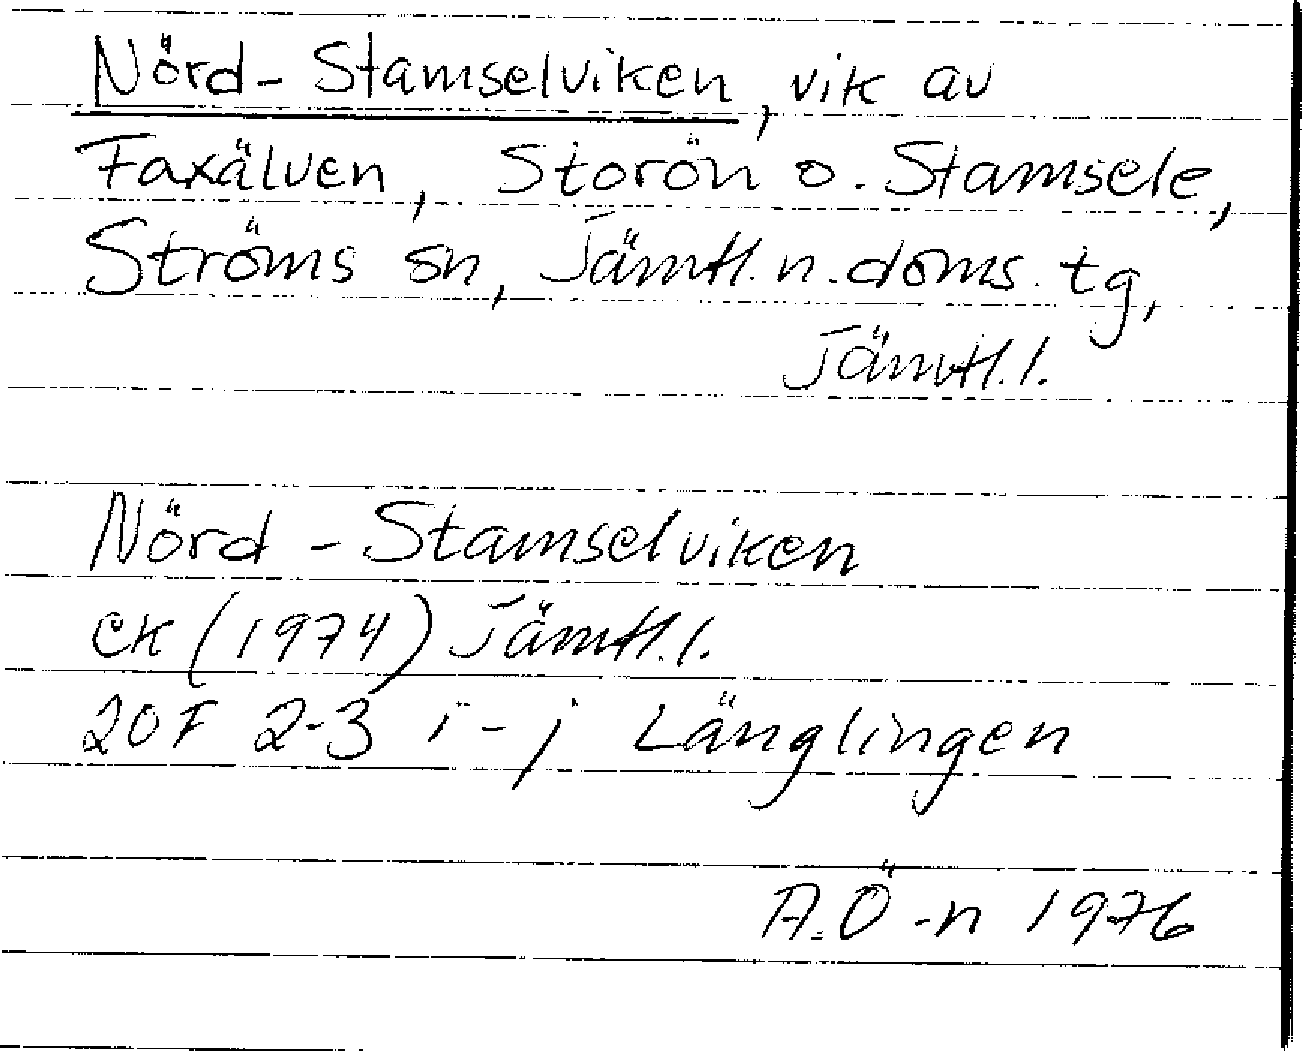 Nörd-Stamselviken, vik av
Faxälven, Storön o. Stamsele,
Ströms sn, Jämtl. n. doms. tg,
Jämtl. l.
Nörd-Stamselviken
ek (1974) Jämtl. l.
20F 2-3 i-j Länglingen
A.Ö-n 1976